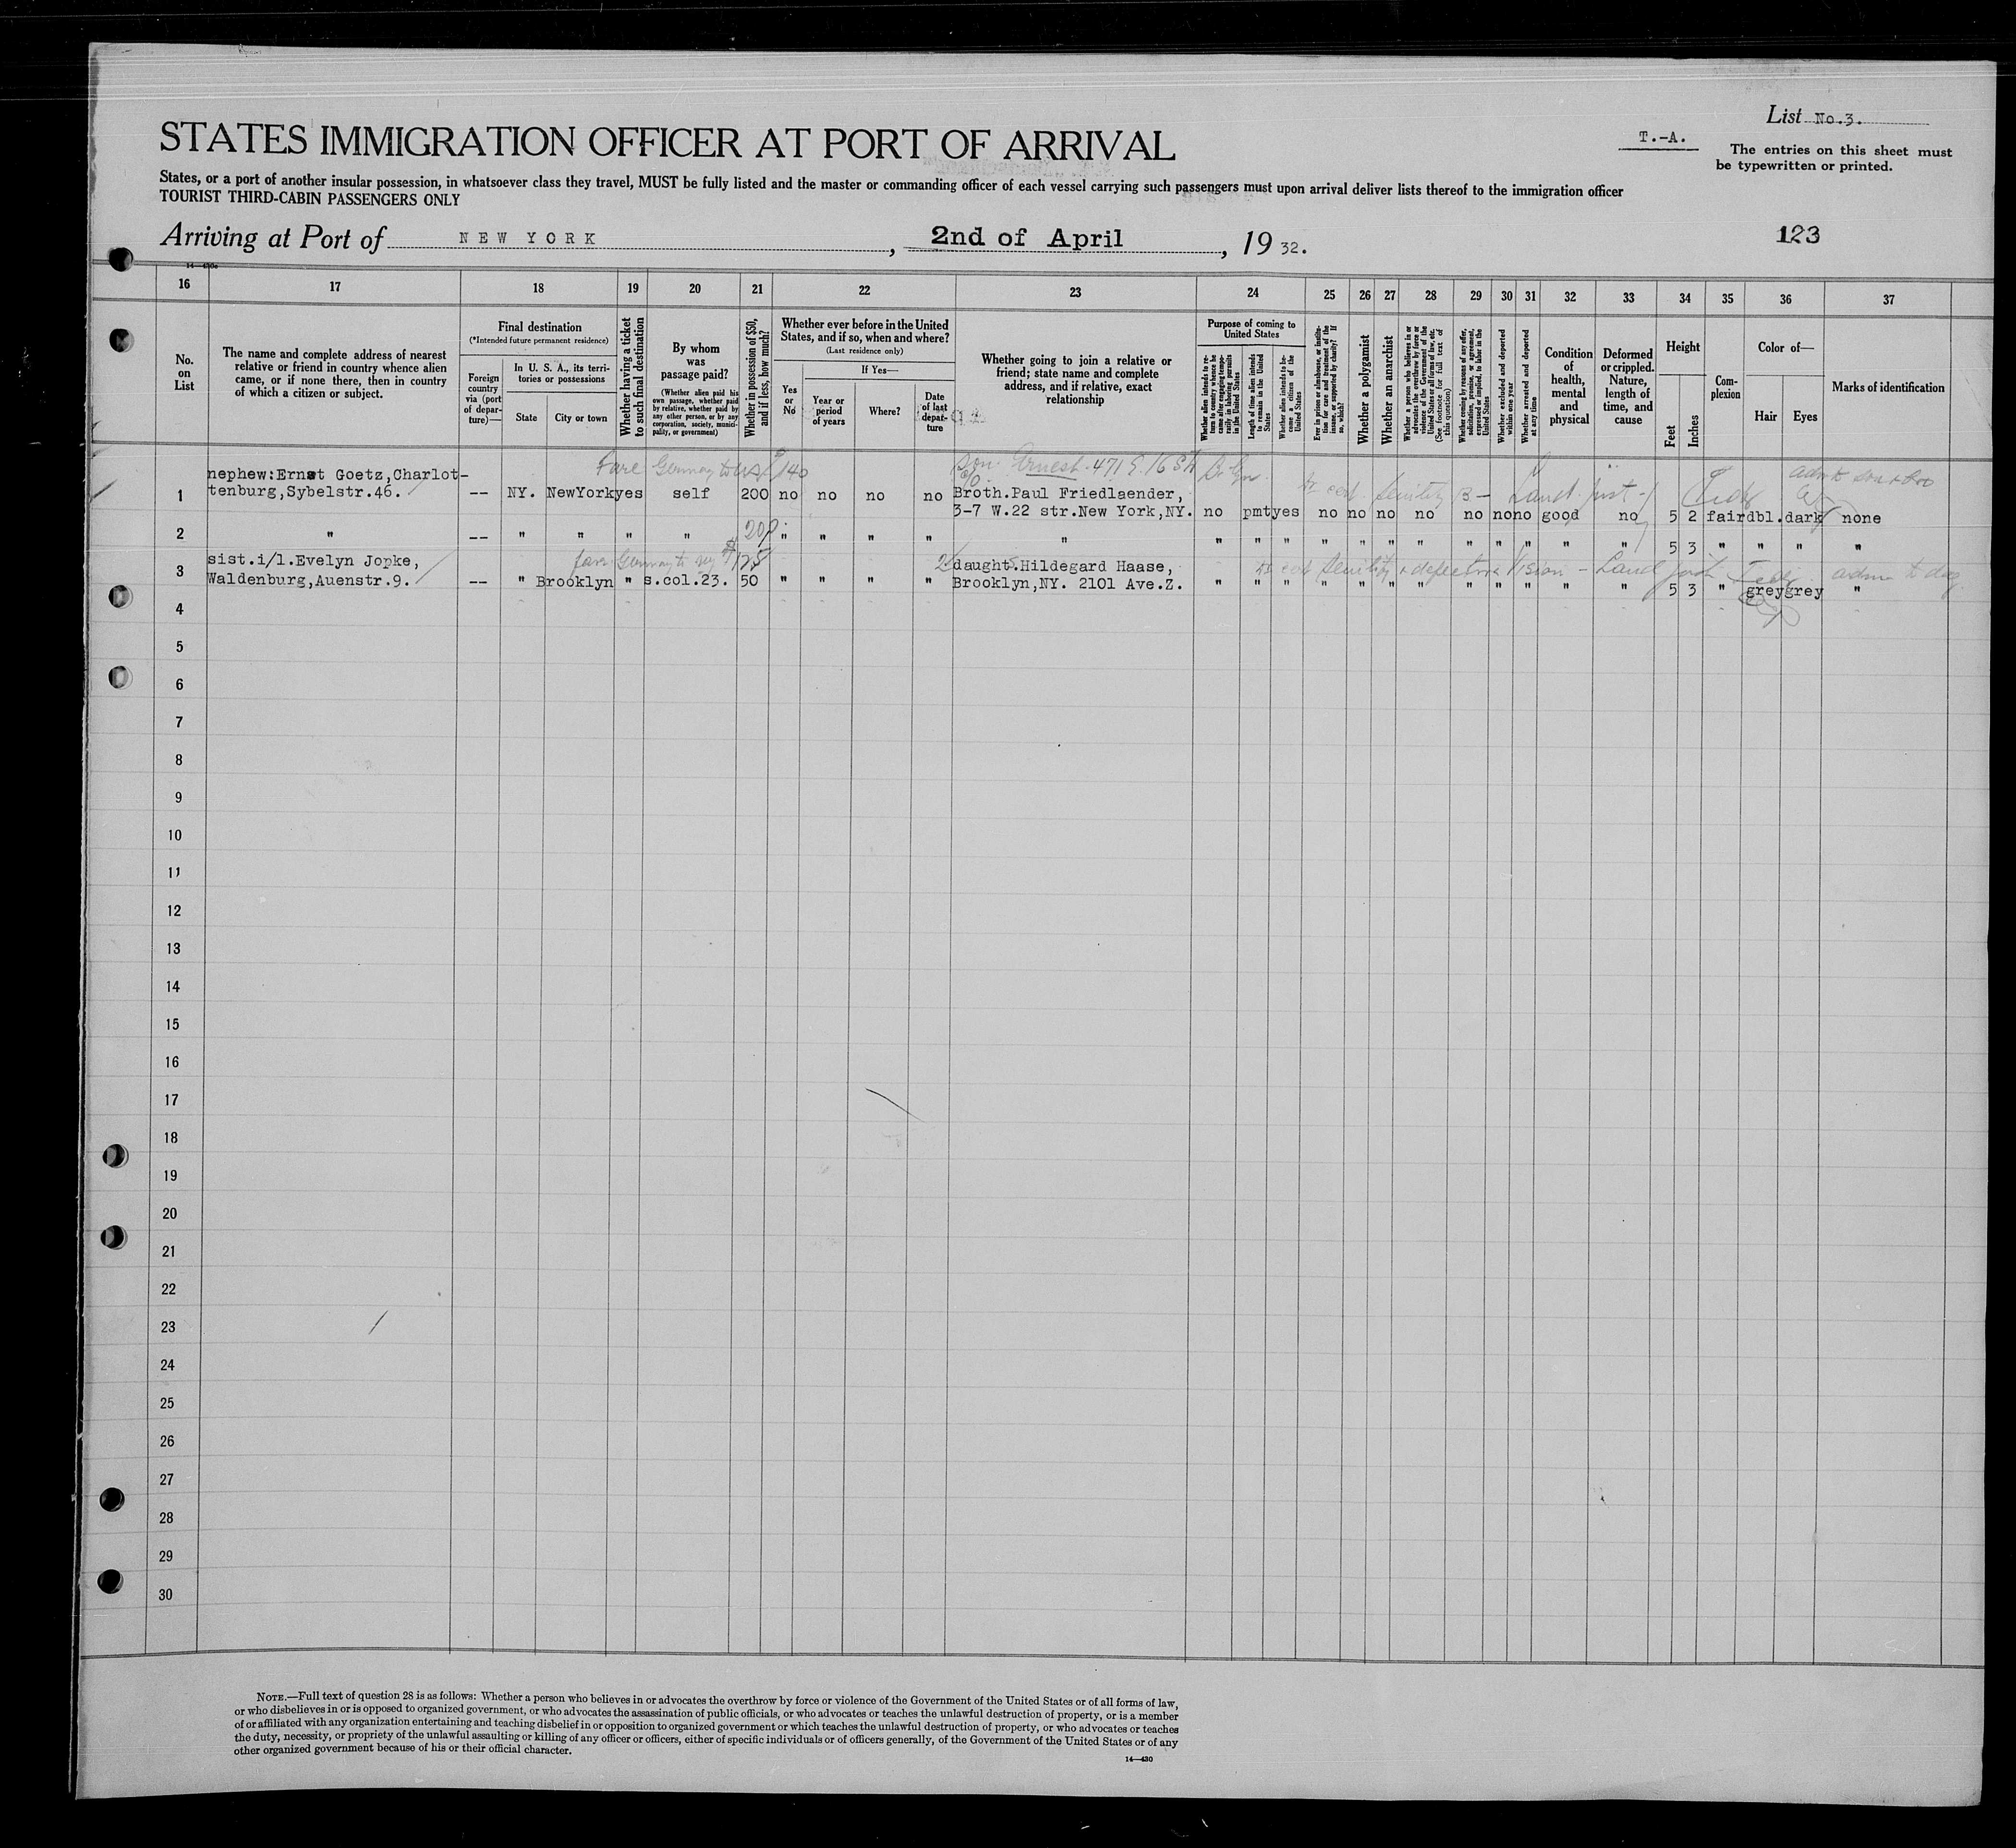 List No.3.
STATES IMMIGRATION OFFICER AT PORT OF ARRIVAL
T.-A.
The entries on this sheet must
be typewritten or printed.
States, or a port of another insular possession, in whatsoever class they travel, MUST be fully listed and the master or commanding officer of each vessel carrying such passengers must upon arrival deliver lists thereof to the immigration officer
TOURIST THIRD-CABIN PASSENGERS ONLY
Arriving at Port of NEW YORK, 2nd of April, 1932.
123
14—430c
16 17 18 19 20 21 22 23 24 25 26 27 28 29 30 31 32 33 34 35 36 37
No. on List
The name and complete address of nearest
relative or friend in country whence alien
came, or if none there, then in country
of which a citizen or subject.
Final destination
(*Intended future permanent residence)
Foreign country via (port of departure)—
In U. S. A., its territories or possessions
State
City or town
Whether having a ticket to such final destination
By whom was passage paid?
(Whether alien paid his own passage, whether paid by relative, whether paid by any other person, or by any corporation, society, municipality, or government)
Whether in possession of $50, and if less, how much?
Whether ever before in the United
States, and if so, when and where?
(Last residence only)
Yes or No
If Yes—
Year or period of years
Where?
Date of last departure
Whether going to join a relative or
friend; state name and complete
address, and if relative, exact
relationship
Purpose of coming to United States
Whether alien intends to return to country whence he came after engaging temporarily in laboring pursuits in the United States
Length of time alien intends to remain in the United States
Whether alien intends to become a citizen of the United States
Ever in prison or almshouse, or institution for care and treatment of the insane, or supported by charity? If so, which?
Whether a polygamist
Whether an anarchist
Whether a person who believes in or advocates the overthrow by force or violence of the Government of the United States or all forms of law, etc. (See footnote for full text of this question)
Whether coming by reasons of any offer, solicitation, promise, or agreement, expressed or implied, to labor in the United States
Whether excluded and deported within one year
Whether arrested and deported at any time
Condition of health, mental and physical
Deformed or crippled. Nature, length of time, and cause
Height
Feet
Inches
Complexion
Color of—
Hair
Eyes
Marks of identification
Fare Germany to US $140
son Ernest 471 E. 16 St Bklyn
nephew:Ernst Goetz,Charlot-
1 tenburg,Sybelstr.46. -- NY. NewYork yes self 200 no no no no c/o Broth.Paul Friedlaender,
3-7 W.22 str.New York,NY. no pmt yes no no no no no no no good no 5 2 fair dbl. dark none
2 " -- " " " " 200 " " " " " " " " " " " " " " " " " 5 3 " " " "
fare Germany to NY $125
cert senility & defective vision
sist.i/l.Evelyn Jopke,
daught.Hildegard Haase,
3 Waldenburg,Auenstr.9. -- " Brooklyn " s.col.23. 50 " " " " Brooklyn,NY. 2101 Ave.Z. " " " " " " " " " " " " 5 3 " grey grey "
4
5
6
7
8
9
10
11
12
13
14
15
16
17
18
19
20
21
22
23
24
25
26
27
28
29
30
NOTE.—Full text of question 28 is as follows: Whether a person who believes in or advocates the overthrow by force or violence of the Government of the United States or of all forms of law,
or who disbelieves in or is opposed to organized government, or who advocates the assassination of public officials, or who advocates or teaches the unlawful destruction of property, or is a member
of or affiliated with any organization entertaining and teaching disbelief in or opposition to organized government or which teaches the unlawful destruction of property, or who advocates or teaches
the duty, necessity, or propriety of the unlawful assaulting or killing of any officer or officers, either of specific individuals or of officers generally, of the Government of the United States or of any
other organized government because of his or their official character.
14—430